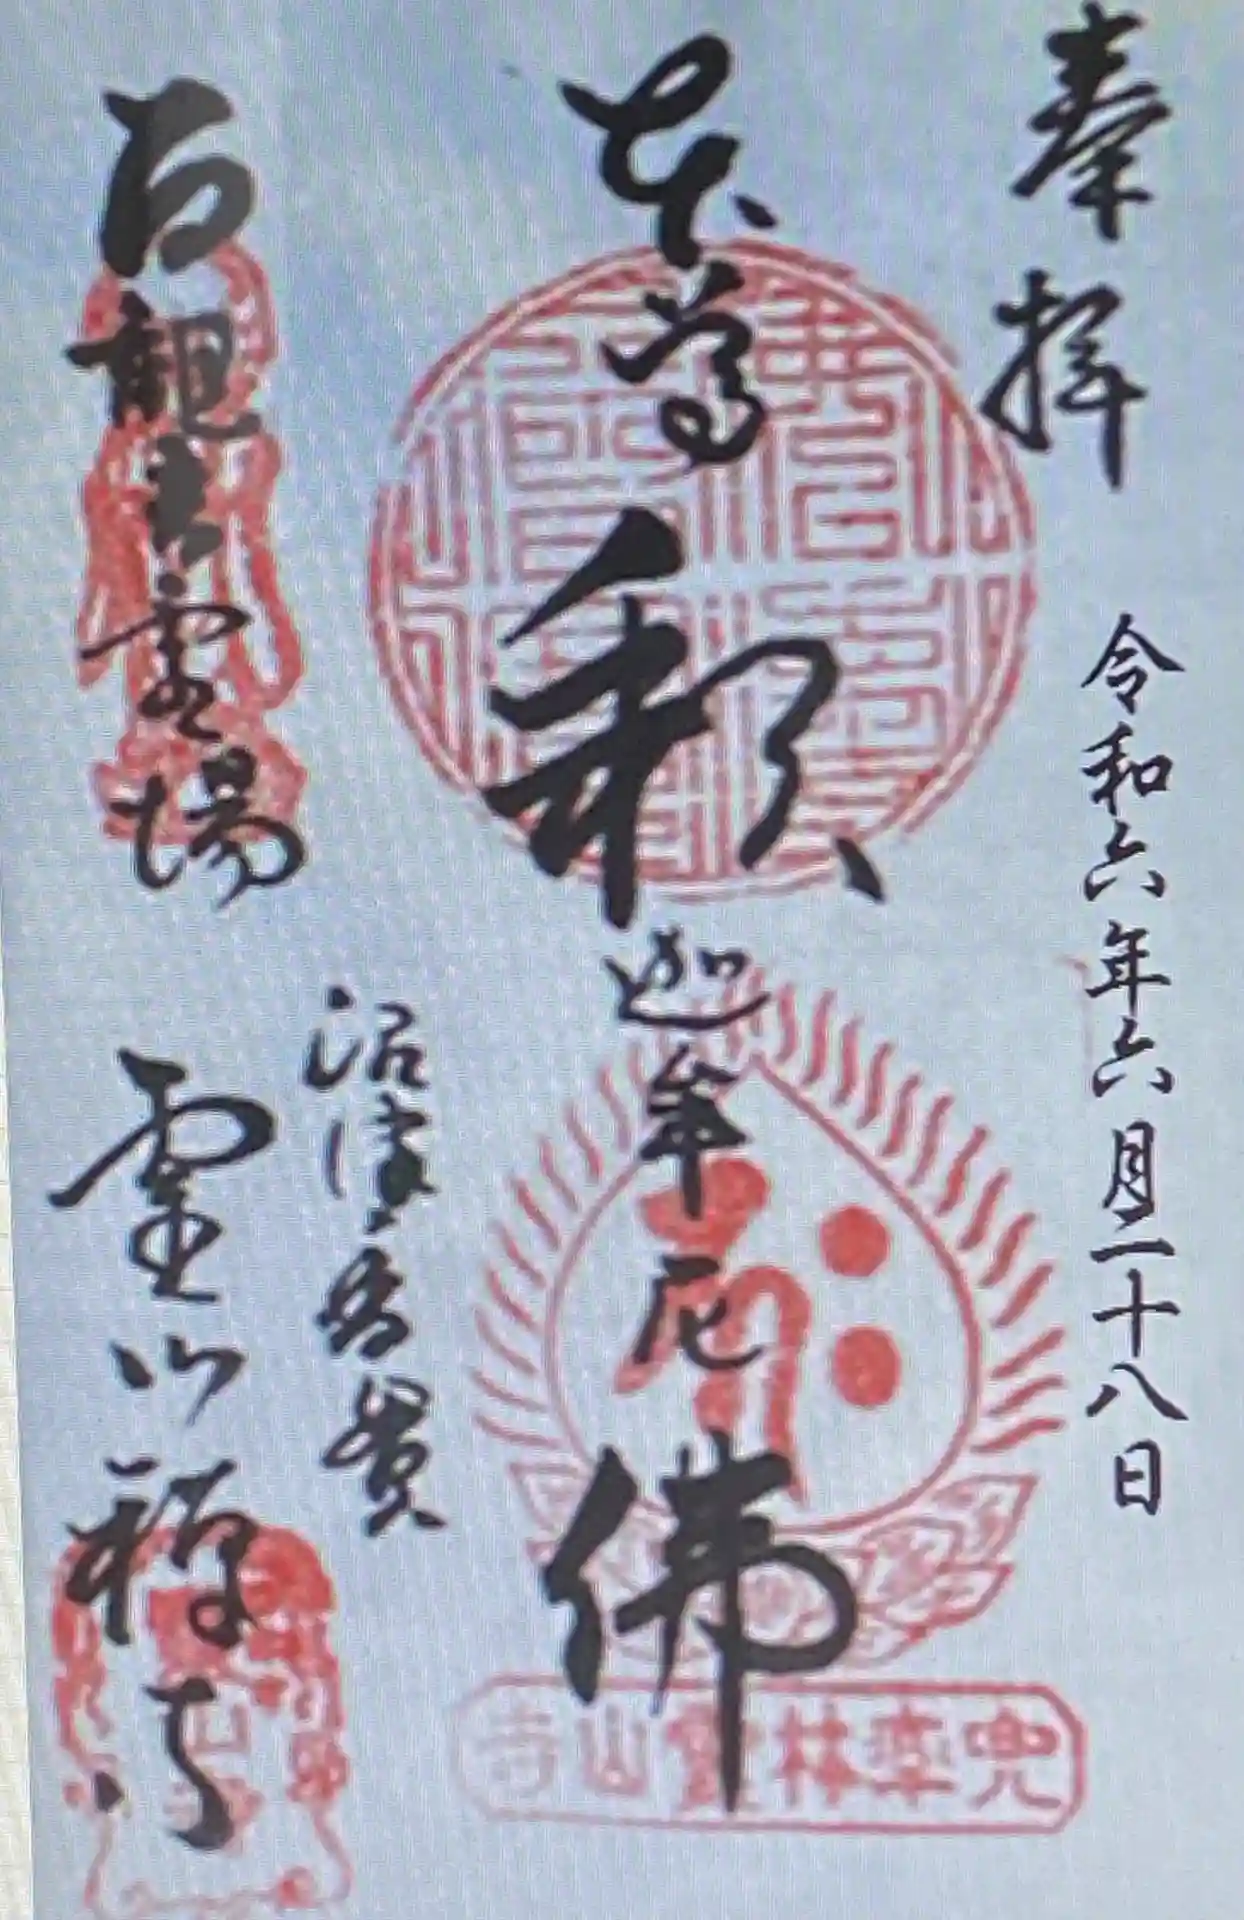 奉拝
令和六年六月二十八日
本尊
釈迦牟尼佛
百観音霊場
沼津香貫
霊山禅寺
兜率林霊山寺